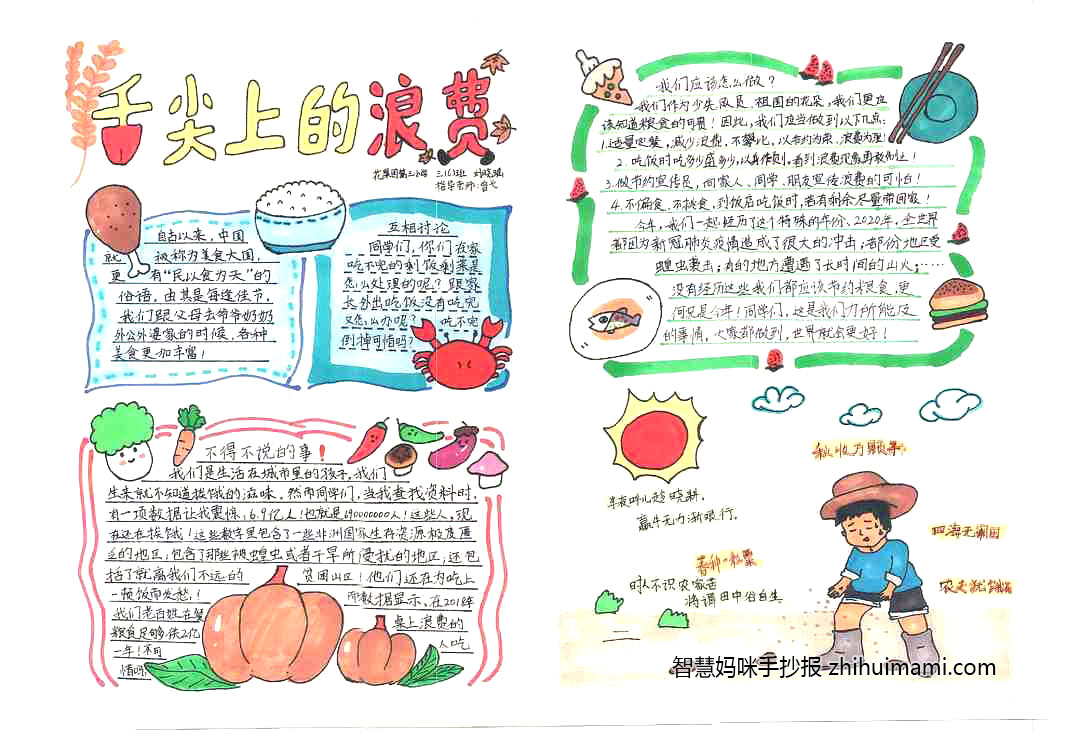 舌尖上的浪费
花果园第三小学 三(6)班 刘晓瑞
指导老师:曾弋
自古以来，中国
就被称为美食大国，
更有“民以食为天”的
俗语，由其是每逢佳节，
我们跟父母去爷爷奶奶
外公外婆家的时候，各种
美食更加丰富！
互相讨论
同学们，你们在家
吃不完的剩饭剩菜是
怎么处理的呢？跟家
长外出吃饭没有吃完
又怎么办呢？吃不完
倒掉可惜吗？
不得不说的事！
我们是生活在城市里的孩子，我们
生来就不知道挨饿的滋味，然而同学们，当我查找资料时，
有一项数据让我震惊，6.9亿人！也就是690000000人！这些人，现
在还在挨饿！这些数字里包含了一些非洲国家生存资源极度匮
乏的地区，包含了那些被蝗虫或者干旱所侵扰的地区，还包
括了就离我们不远的贫困山区！他们还在为吃上
一顿饭而发愁！！而数据显示，在2018年
我们老百姓在餐桌上浪费的
粮食足够供2亿人吃
一年！不可
惜吗？
我们应该怎么做？
我们作为少先队员、祖国的花朵，我们更应
该知道粮食的可贵！因此，我们应当做到以下几点：
1.适量定餐，减少浪费，不攀比，以节约为荣，浪费为耻！
2.吃饭时吃多少盛多少，以身作则，看到浪费现象勇敢制止！
3.做节约宣传员，向家人、同学、朋友宣传浪费的可怕！
4.不偏食、不挑食，到饭店吃饭时，若有剩余尽量带回家！
今年，我们一起经历了这个特殊的年份，2020年，全世界
都因为新冠肺炎疫情造成了很大的冲击；部份地区受
蝗虫袭击；有的地方遭遇了长时间的山火；……
没有经历这些我们都应该节约粮食，更
何况是今年！同学们，这是我们力所能及
的事情，大家都做到，世界就会更好！
秋收万颗子
半夜呼儿趁晓耕，
羸牛无力渐艰行。
四海无闲田
春种一粒粟
农夫犹饿死
时人不识农家苦
将谓田中谷自生
智慧妈咪手抄报-zhihuimami.com